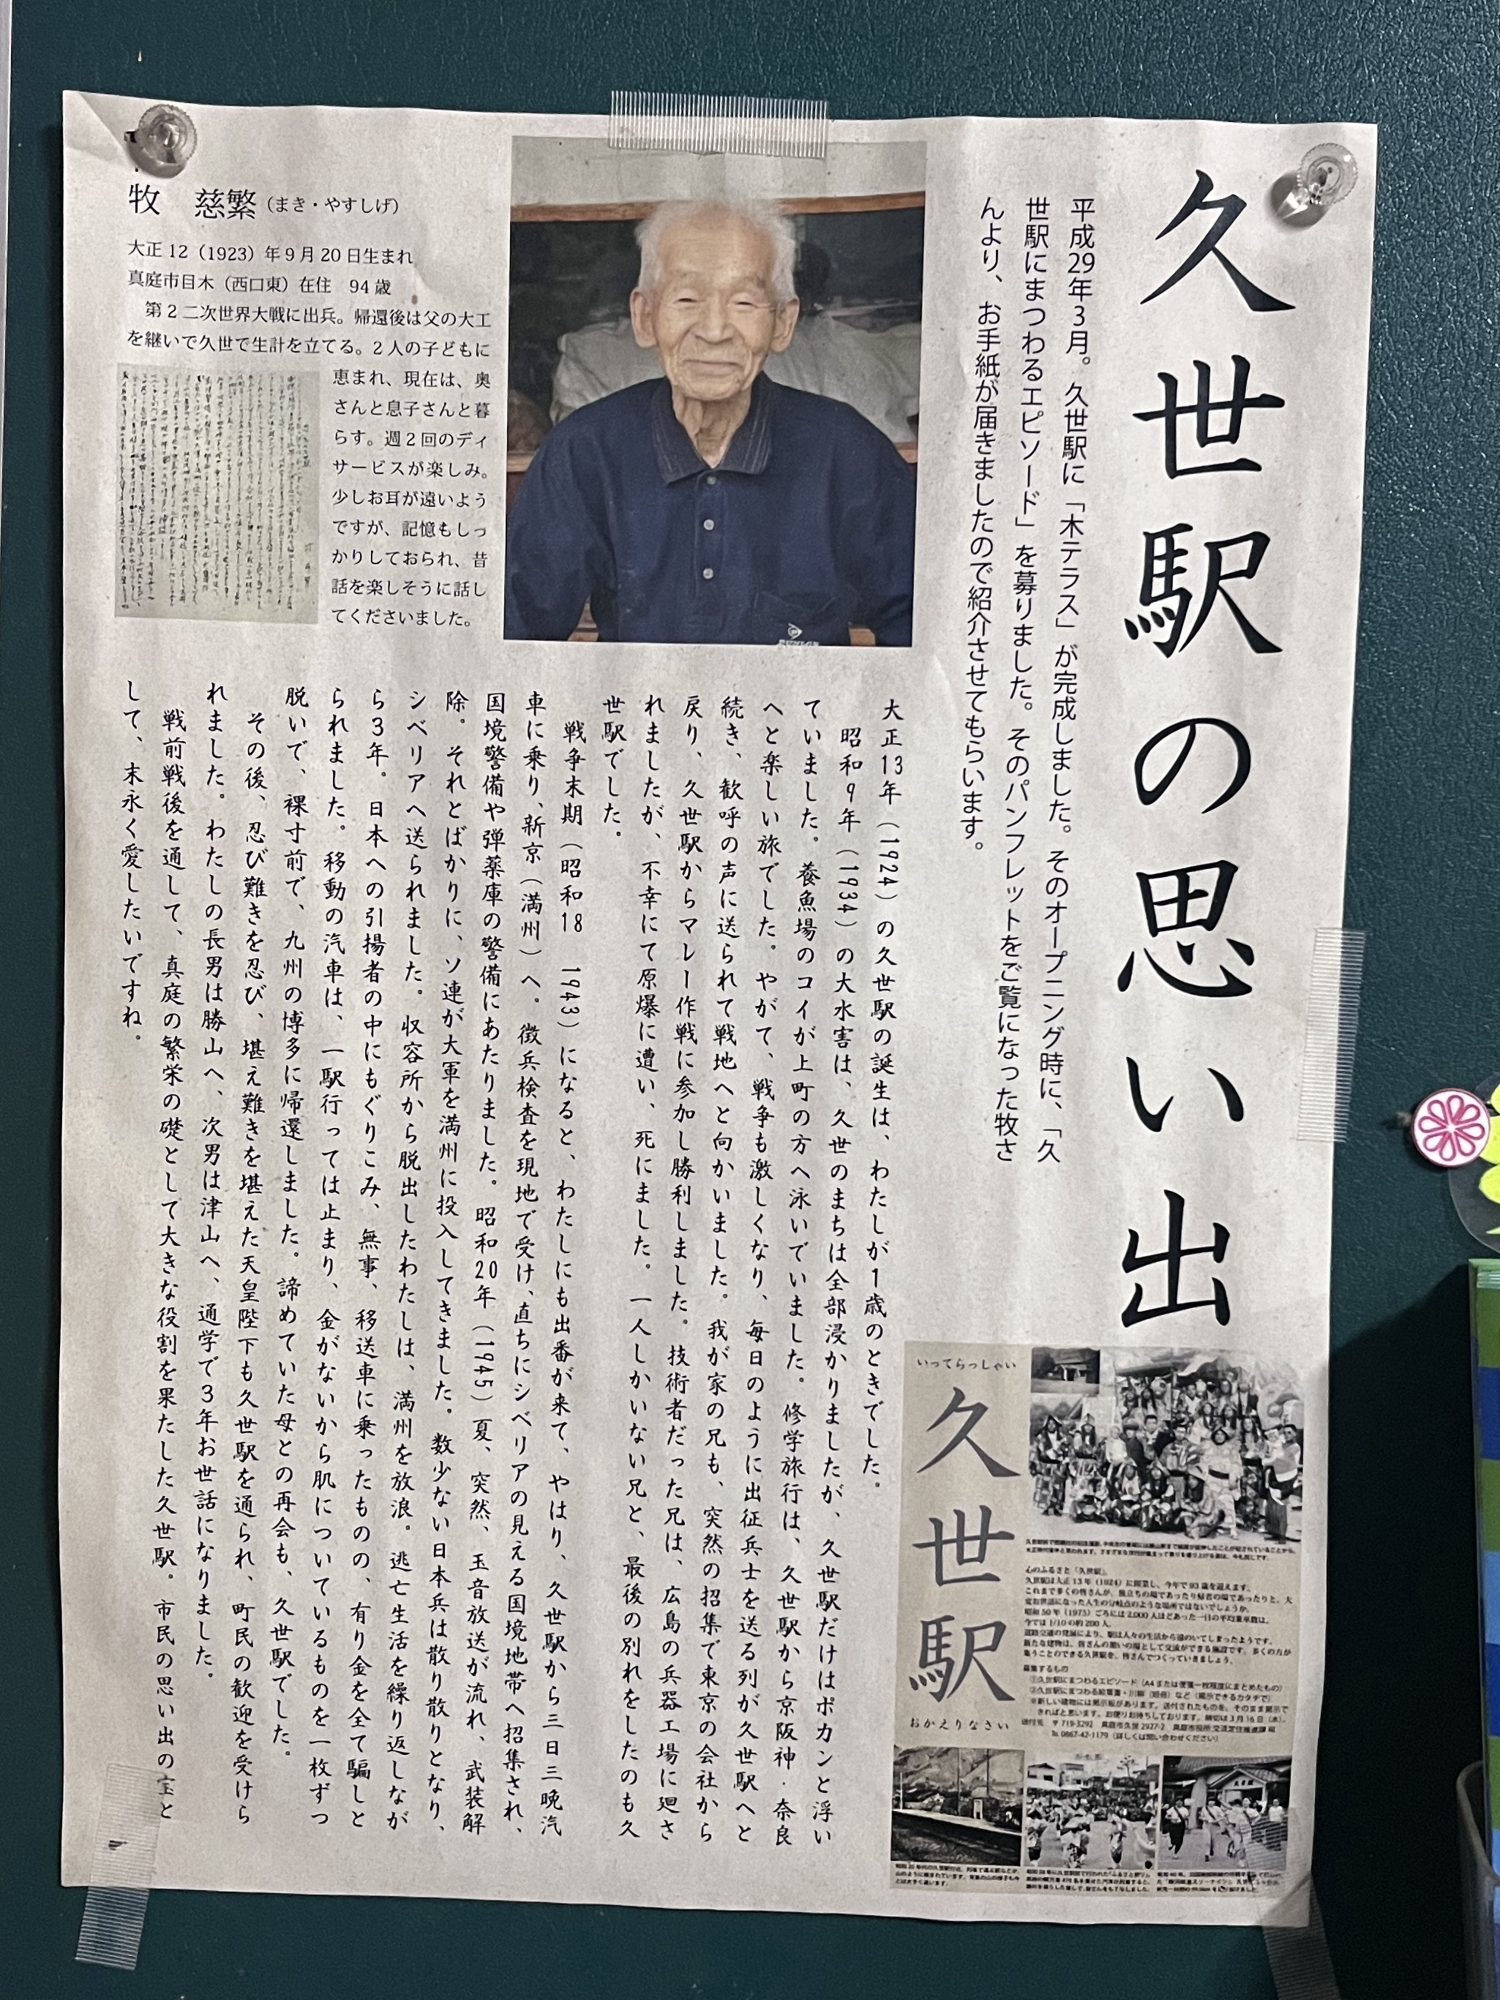 久世駅の思い出
平成29年3月。久世駅に「木テラス」が完成しました。そのオープニング時に、「久
世駅にまつわるエピソード」を募りました。そのパンフレットをご覧になった牧さ
んより、お手紙が届きましたので紹介させてもらいます。
牧 慈繁(まき・やすしげ)
大正12(1923)年9月20日生まれ
真庭市目木(西口東)在住 94歳
第2二次世界大戦に出兵。帰還後は父の大工
を継いで久世で生計を立てる。2人の子どもに
恵まれ、現在は、奥
さんと息子さんと暮
らす。週2回のディ
サービスが楽しみ。
少しお耳が遠いよう
ですが、記憶もしっ
かりしておられ、昔
話を楽しそうに話し
てくださいました。
大正13年(1924)の久世駅の誕生は、わたしが1歳のときでした。
昭和9年(1934)の大水害は、久世のまちは全部浸かりましたが、久世駅だけはポカンと浮い
ていました。養魚場のコイが上町の方へ泳いでいました。修学旅行は、久世駅から京阪神・奈良
へと楽しい旅でした。やがて、戦争も激しくなり、毎日のように出征兵士を送る列が久世駅へと
続き、歓呼の声に送られて戦地へと向かいました。我が家の兄も、突然の招集で東京の会社から
戻り、久世駅からマレー作戦に参加し勝利しました。技術者だった兄は、広島の兵器工場に廻さ
れましたが、不幸にて原爆に遭い、死にました。一人しかいない兄と、最後の別れをしたのも久
世駅でした。
戦争末期(昭和18 1943)になると、わたしにも出番が来て、やはり、久世駅から三日三晩汽
車に乗り、新京(満州)へ。徴兵検査を現地で受け、直ちにシベリアの見える国境地帯へ招集され、
国境警備や弾薬庫の警備にあたりました。昭和20年(1945)夏、突然、玉音放送が流れ、武装解
除。それとばかりに、ソ連が大軍を満州に投入してきました。数少ない日本兵は散り散りとなり、
シベリアへ送られました。収容所から脱出したわたしは、満州を放浪。逃亡生活を繰り返しなが
ら3年。日本への引揚者の中にもぐりこみ、無事、移送車に乗ったものの、有り金を全て騙しと
られました。移動の汽車は、一駅行っては止まり、金がないから肌についているものを一枚ずつ
脱いで、裸寸前で、九州の博多に帰還しました。諦めていた母との再会も、久世駅でした。
その後、忍び難きを忍び、堪え難きを堪えた天皇陛下も久世駅を通られ、町民の歓迎を受けら
れました。わたしの長男は勝山へ、次男は津山へ、通学で3年お世話になりました。
戦前戦後を通して、真庭の繁栄の礎として大きな役割を果たした久世駅。市民の思い出の宝と
して、末永く愛したいですね。
いってらっしゃい
久世駅
おかえりなさい
心のふるさと「久世駅」
久世駅は大正13年(1924)に開業し、今年で93歳を迎えます。
募集するもの